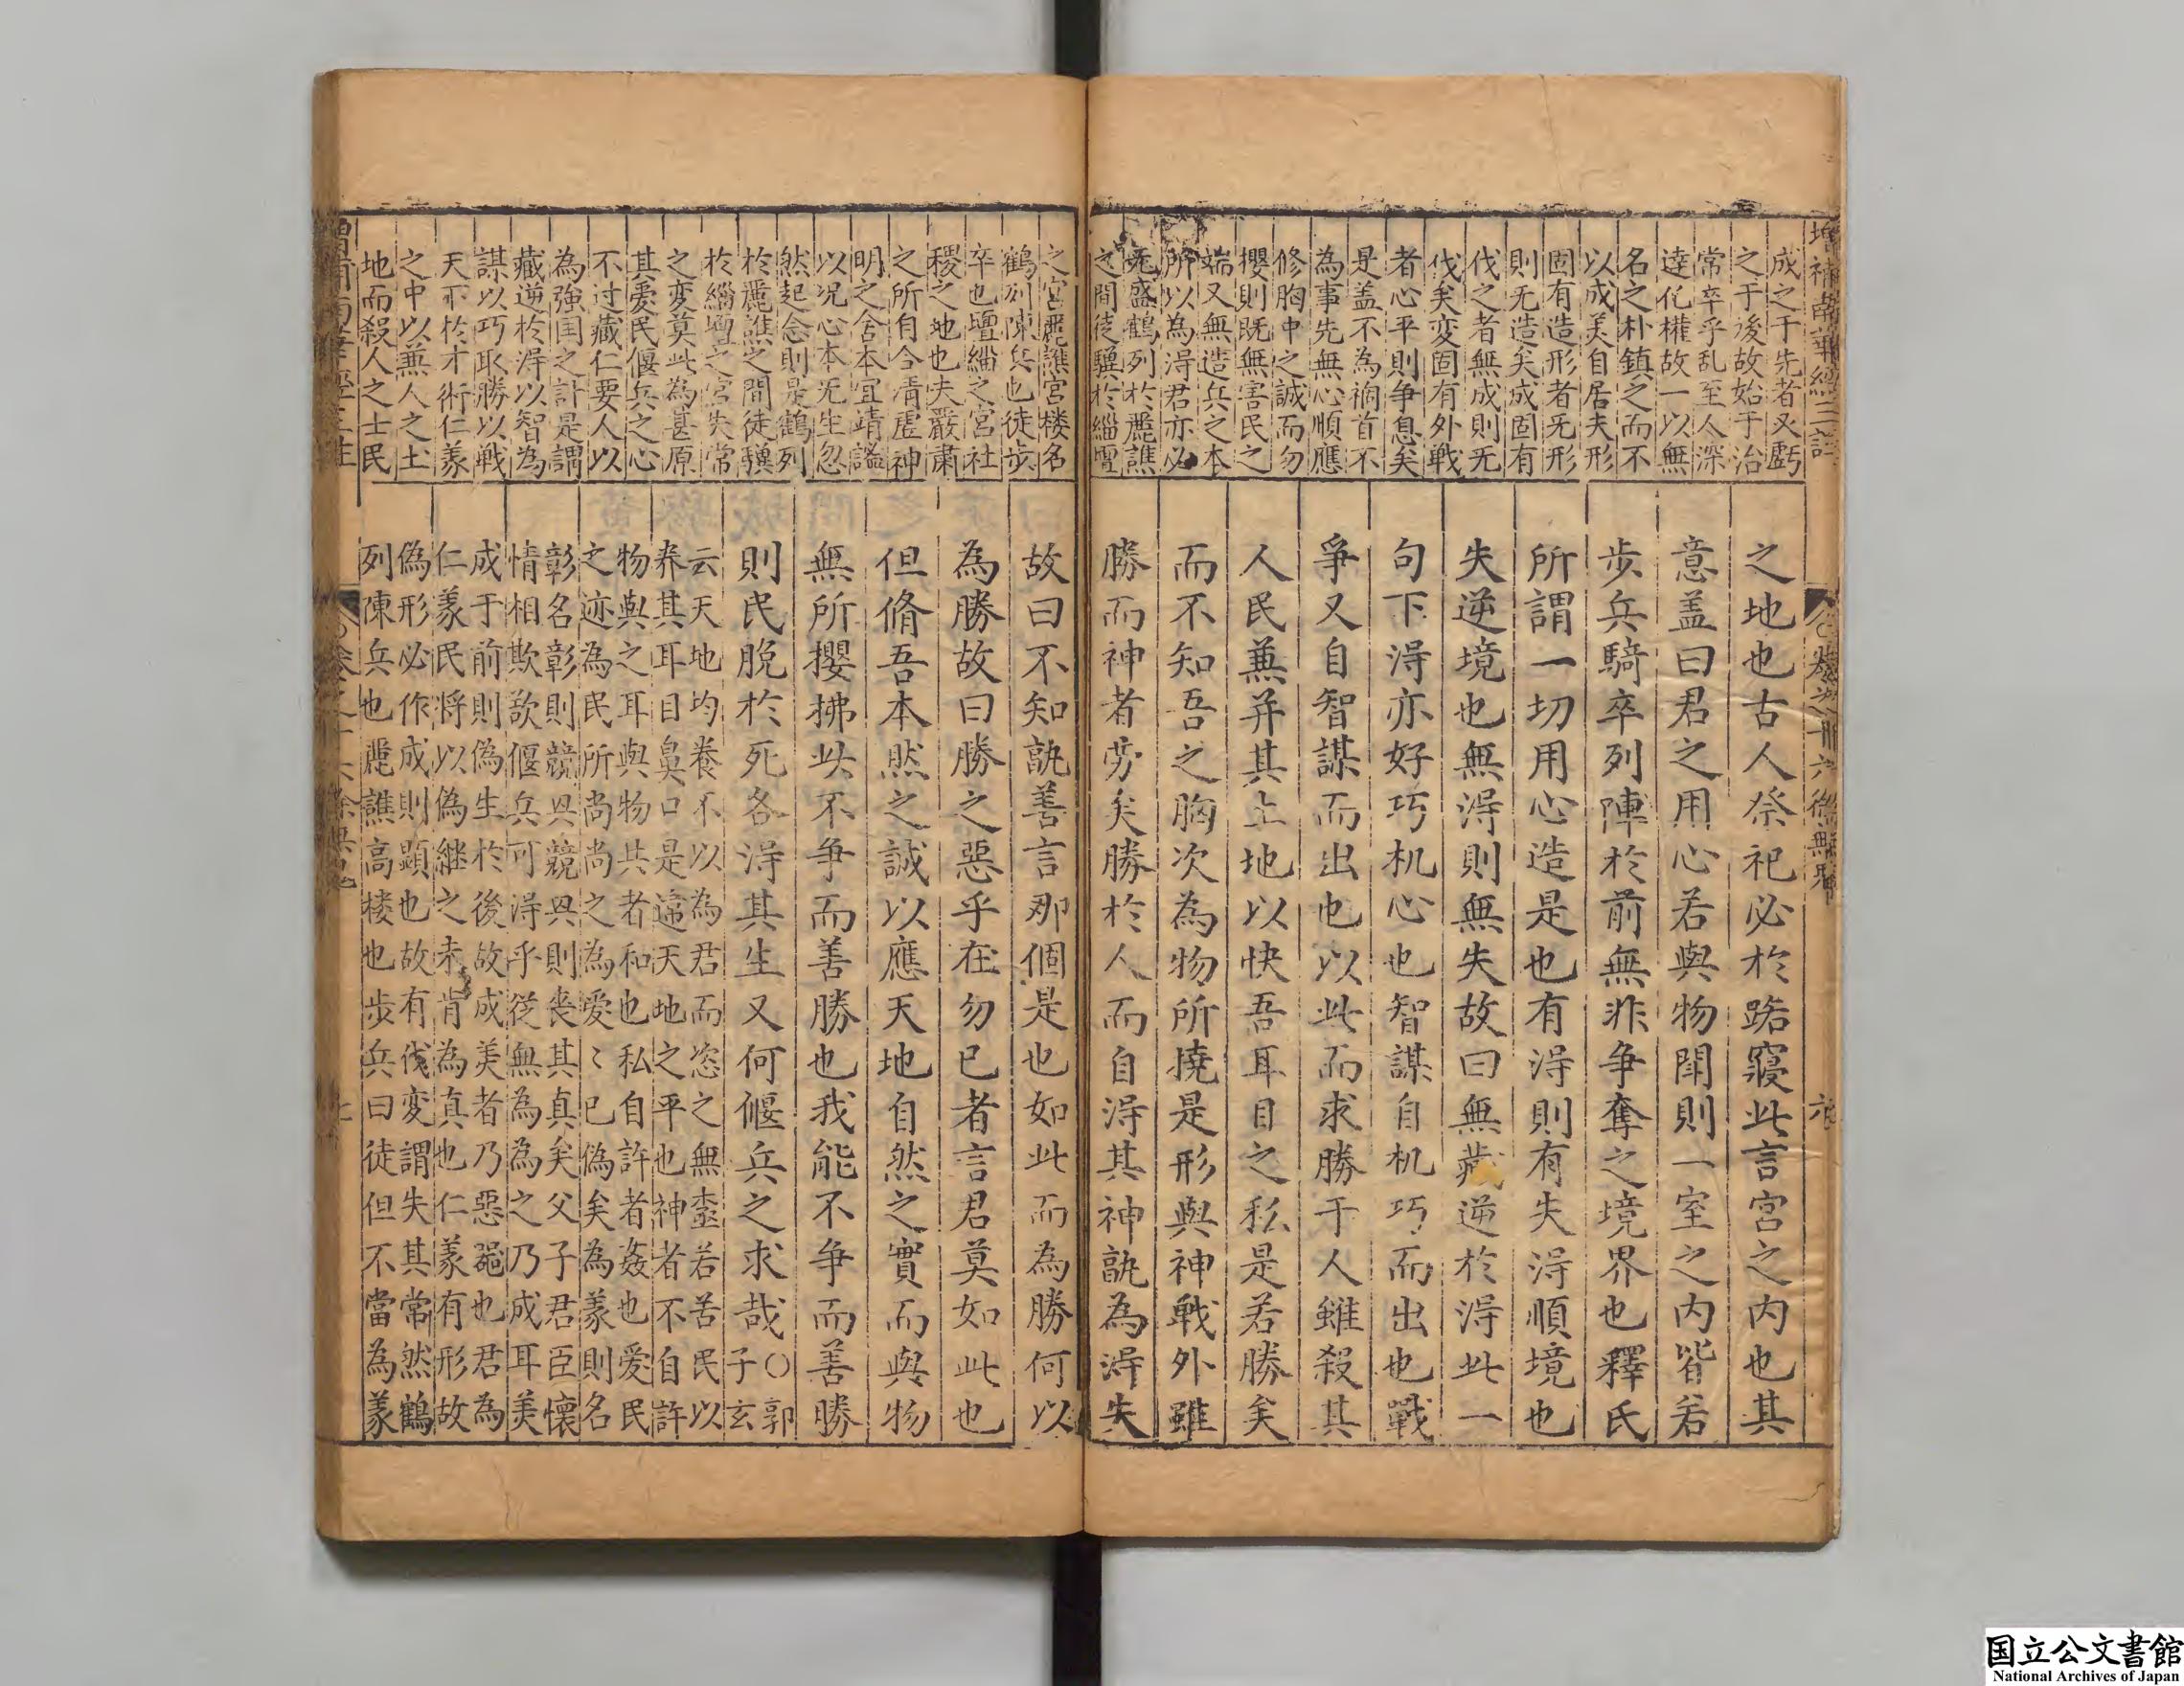 增補南華經三註
成之于先者又虧
之于後故始于治
常卒乎乱至人深
達化權故一以無
名之朴鎮之而不
以成美自居夫形
固有造形者旡形
則无造矣成固有
伐之者無成則无
伐矣変固有外戦
者心平則争息矣
是盖不為禍首不
為事先無心順應
修胸中之誠而勿
攖則既無害民之
端又無造兵之本
所以為淂君亦必
無盛鶴列於麗譙
之間徒驥於緇壇
之地也古人祭祀必於踞寢此言宮之内也其
意盖曰君之用心若與物鬪則一室之内皆若
步兵騎卒列陣於前無非争奪之境界也釋氏
所謂一切用心造是也有淂則有失淂順境也
失逆境也無淂則無失故曰無藏逆於淂此一
句下淂亦好巧机心也智謀自机巧而出也戰
爭又自智謀而出也以此而求勝于人雖殺其
人民兼并其土地以快吾耳目之私是若勝矣
而不知吾之胸次為物所撓是形與神戰外雖
勝而神者劳矣勝於人而自淂其神孰為淂失
卷之廿六 徐無鬼
六
之宮麗譙宮楼名
鶴列陳兵也徒步
卒也壇緇之宮社
稷之地也夫嚴肅
之所自合清虚神
明之舍本宜靖謐
以况心本无生忽
然起念則是鶴列
於麗譙之間徒驥
於緇壇之宮失常
之変莫此為甚原
其愛民偃兵之心
不过藏仁要人以
為強国之計是謂
藏逆於淂以智為
謀以巧取勝以戦
天下於才術仁義
之中以兼人之土
地而殺人之士民
故曰不知孰善言那個是也如此而為勝何以
為勝故曰勝之惡乎在勿已者言君莫如此也
但脩吾本然之誠以應天地自然之實而與物
無所攖拂此不争而善勝也我能不争而善勝
則民脫於死各淂其生又何偃兵之求哉○郭
子玄
云天地均養不以為君而恣之無壷若苦民以
养其耳目鼻口是違天地之平也神者不自許
物與之耳與物共者和也私自許者姦也愛民
之迹為民所尚尚之為愛〻已偽矣為義則名
彰名彰則競興競興則丧其真矣父子君臣懷
情相欺欲偃兵可淂乎従無為為之乃成耳美
成于前則偽生於後故成美者乃惡噐也君為
仁義民将以偽継之未肯為真也仁義有形故
偽形必作成則顯也故有伐変謂失其常然鶴
列陳兵也麗譙高楼也步兵曰徒但不當為義